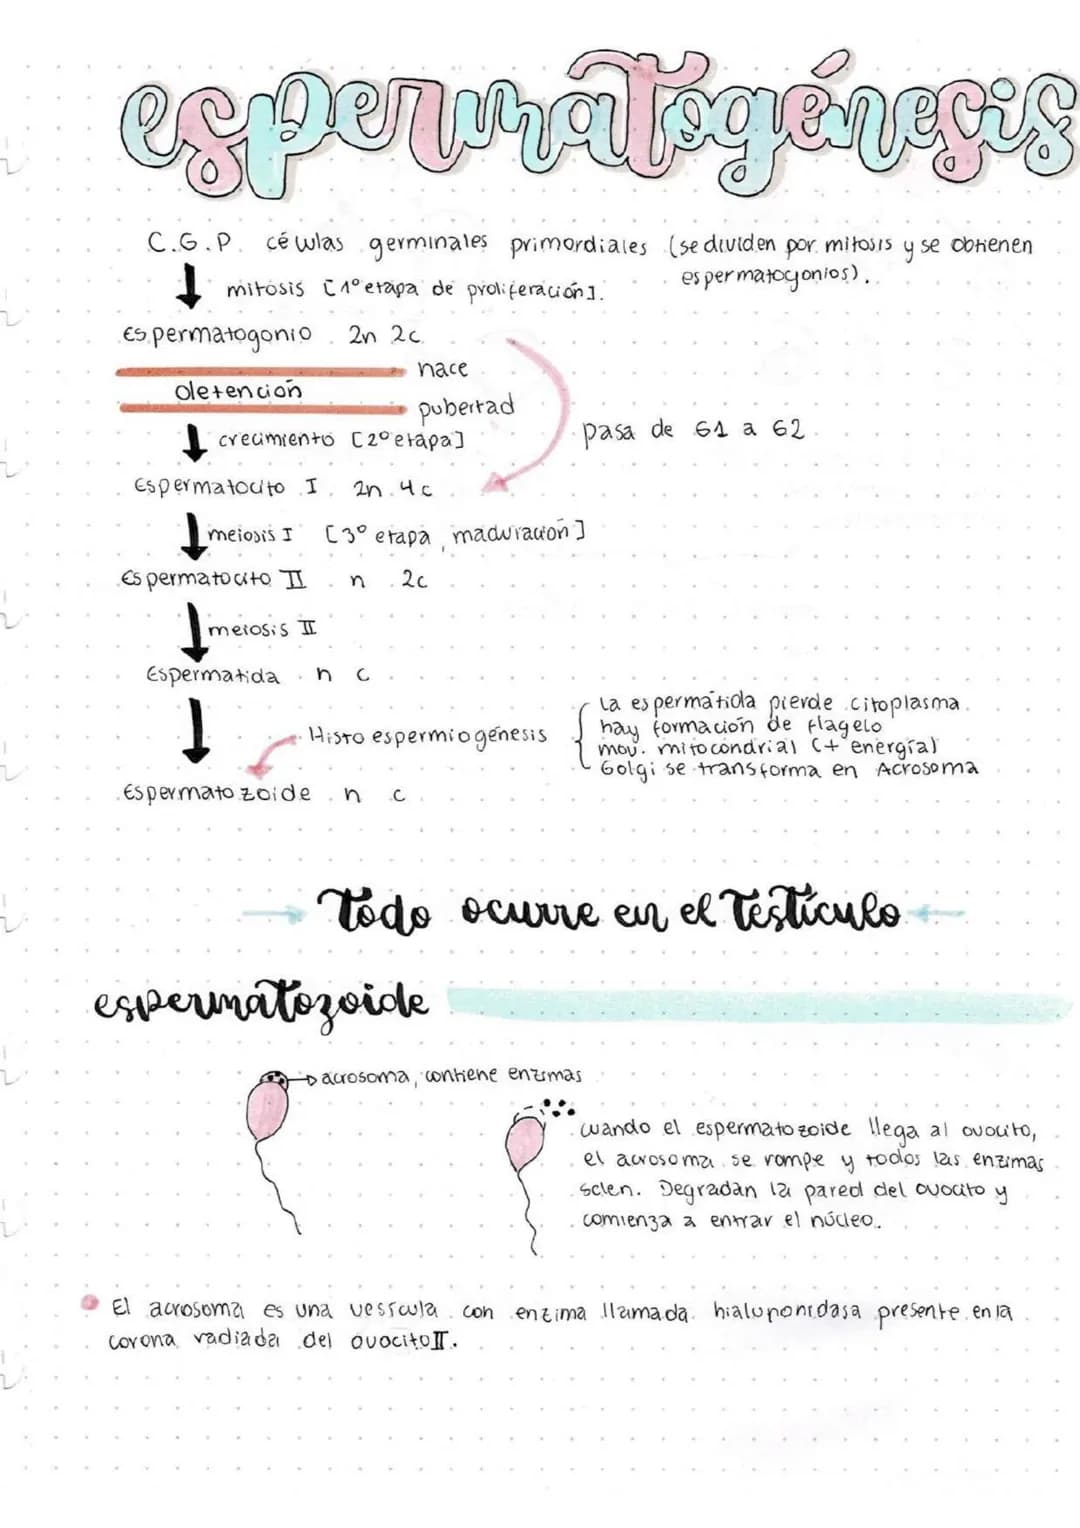 espermatogénesis
C.G.P. células germinales primordiales (se dividen por mitosis y se obtienen
espermatogonios).
mitosis [1º etapa de proliferación].
Espermatogonio 2n 2c
nace
Detención
pubertad
crecimiento [2º etapa]
pasa de G1 a G2
Espermatocito I 2n 4c
meiosis I [3º etapa, maduración]
Espermatocito II n 2c
meiosis II
Espermatida n c
La espermátida pierde citoplasma
hay formación de flagelo
Histo espermiogénesis
mov. mitocondrial (+ energía)
Golgi se transforma en Acrosoma
Espermatozoide n c
Todo ocurre en el Testículo
espermatozoide
acrosoma, contiene enzimas
cuando el espermatozoide llega al ovocito,
el acrosoma se rompe y todos las enzimas
salen. Degradan la pared del ovocito y
comienza a entrar el núcleo.
El acrosoma es una vesícula con enzima llamada hialuponidasa presente en la
corona radiada del ovocito II.